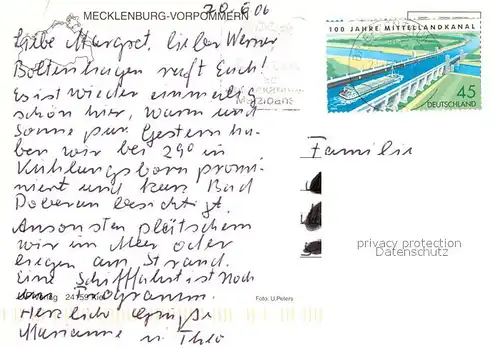 MECKLENBURG-VORPOMMERN
28.6.06
Liebe Margret, lieber Werner
Boltenhagen ruft Euch!
Es ist wieder einmalig
schön hier, warm und
Sonne pur. Gestern ha-
ben wir bei 29° in
Kühlungsborn promi-
niert und kurz Bad
Doberan besichtigt.
Ansonsten plätschern
wir im Meer oder
liegen am Strand.
Eine Schifffahrt ist noch
im Programm.
24159 Kiel
Foto: U.Peters
Herzliche Grüße
Marianne u. Theo
100 JAHRE MITTELLANDKANAL
45
DEUTSCHLAND
Familie
privacy protection
Datenschutz